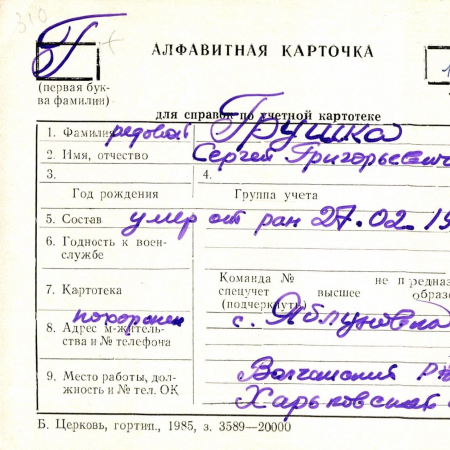 310
Г
АЛФАВИТНАЯ КАРТОЧКА
(первая бук-
ва фамилии)
для справок по учетной картотеке
1. Фамилия рядовой Грушко
2. Имя, отчество Сергей Григорьевич
3. 4.
Год рождения Группа учета
5. Состав умер от ран 27.02.19
6. Годность к воен-
службе
7. Картотека
Команда № не предназ
спецучет высшее образо
(подчеркнуть)
похоронен с. Яблуновка
8. Адрес м-житель-
ства и № телефона
9. Место работы, дол-
жность и № тел. ОК
Волчанский
Харьковской
Б. Церковь, гортип., 1985, з. 3589—20000